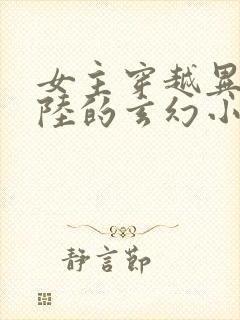 女主穿越异
陸的玄幻小
静言節